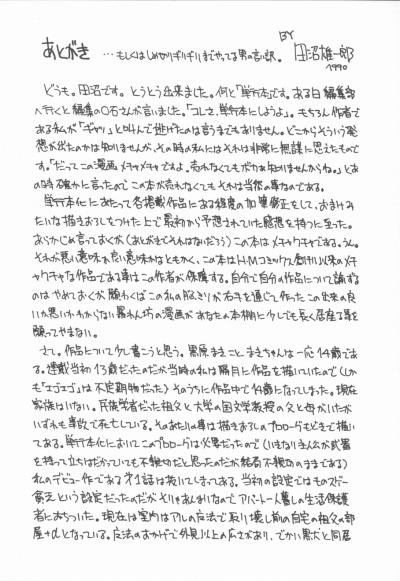 あとがき …もしくはしめ切りギリギリまでやってる男の言い訳。 BY 田沼雄一郎
1990
どうも。田沼です。とうとう出来ました。何と「単行本」です。ある日編集部
へ行くと編集の〇石さんが言いました。「コレさ、単行本にしようよ。」もちろん作者で
ある私が「ギャッ」と叫んで逃げたのは言うまでもありません。どこからそういう発
想が出たのかは知りませんが、その時の私にはそれは非常に無謀に思えたもので
す。「だってこの漫画メチャメチャですよ。売れなくてもボカぁ知りませんからね。」とあ
の時確かに言ったのでこの本が売れなくてもそれは当然の事なのである。
単行本化にあたって各掲載作品にある程度の加筆修正をして、おまけみ
たいな描きおろしをつけた上で最初から予想されていた感想を持つに至った。
あらかじめ言っておくが（あとがきでそれはないだろう）この本はメチャクチャである。うん。
それが悪い意味か良い意味かはともかく、この本はHMコミックス創刊以来のメチ
ャクチャな作品である事はこの作者が保障する。自分で自分の作品について論ずる
のはやめておくが願わくばこの私の
右手を通じて作ったこの出来の良
いか悪いかわからない暴れん坊の漫画があなたの本棚に少しでも長く居座る事を
願ってやまない。
さて。作品について少し書こうと思う。黒原まきこ、まきちゃんは一応14歳であ
る。連載当初13歳だったのだが当時の私は隔月に作品を描いていたので（しか
も「エゴエゴ」は不定期物だった）そのうちに作品中で14歳になってしまった。現在
家族はいない。民俗学者だった祖父と大学の国文学教授の父と母がいたが
いずれも事故で死亡している。そのあたりの事は描きおろしのプロローグもどきで描い
てある。単行本化においてこのプロローグは必要だったので（いきなり主人公が武器
を持って立ちはだかっていても不親切だと思ったのだが結局不親切のままである）
私のデビュー作である第1話は抜いてしまってある。当初の設定ではものスゴー
貧乏という設定だったのだがそりゃあんまりなのでアパート一人暮しの生活保護
者におちついた。現在は室内はアルの魔法で取り壊し前の自宅の祖父の部
屋+αとなっている。魔法のおかげで外見以上の広さがあり、でかい黒犬と同居